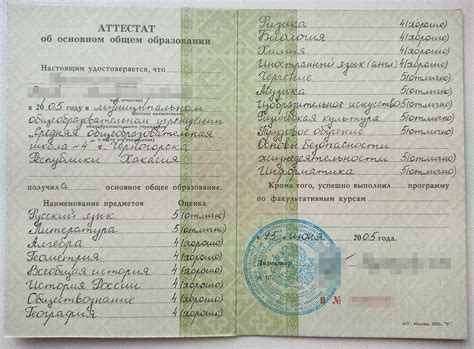 АТТЕСТАТ
об основном общем образовании
Настоящим удостоверяется, что
в 2005 году в муниципальном
общеобразовательном учреждении
Средняя общеобразовательная
школа №4 г. Черногорска
Республики Хакасия
получила основное общее образование.
Наименование предметов Оценка
Русский язык 5 (отлично)
Литература 5 (отлично)
Алгебра 4 (хорошо)
Геометрия 4 (хорошо)
Всеобщая история 4 (хорошо)
История России 4 (хорошо)
Обществознание 4 (хорошо)
География 4 (хорошо)
Физика 4 (хорошо)
Биология 4 (хорошо)
Химия 4 (хорошо)
Иностранный язык (англ.) 4 (хорошо)
Черчение 5 (отлично)
Музыка 5 (отлично)
Изобразительное искусство 5 (отлично)
Физическая культура 5 (отлично)
Трудовое обучение 5 (отлично)
Основы безопасности
жизнедеятельности 5 (отлично)
Информатика 5 (отлично)
Кроме того, успешно выполнил программу
по факультативным курсам
15 июня 2005 года.
Директор
В №